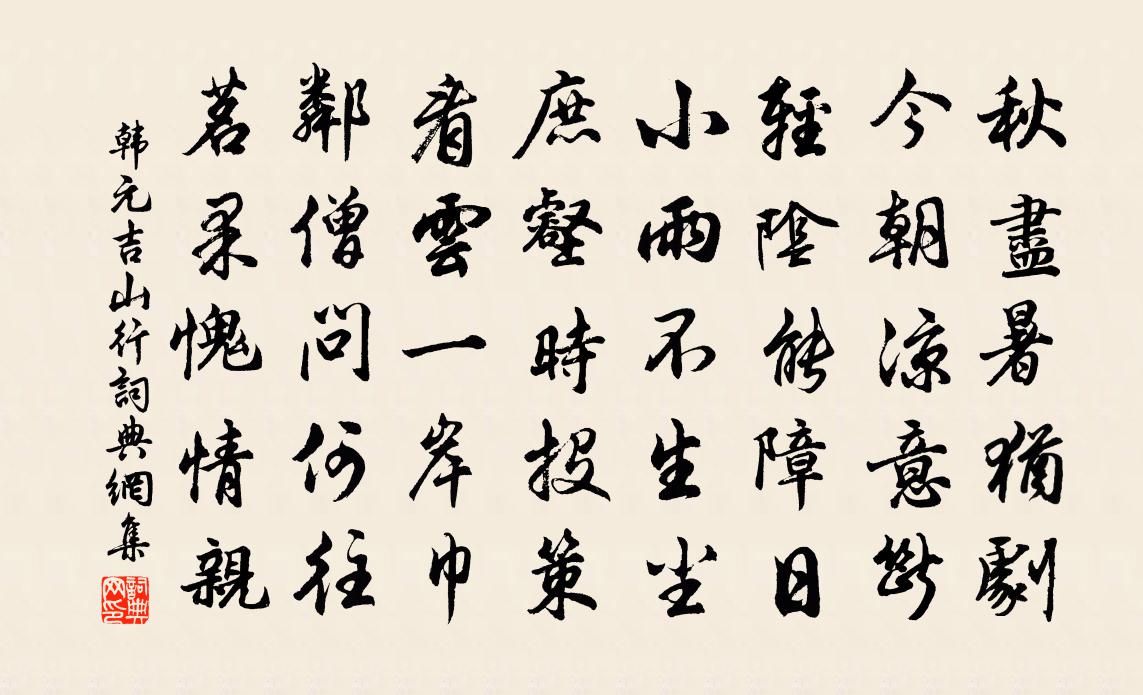 秋盡暑猶劇
今朝涼意新
輕陰能障日
小雨不生尘
庶壑時投策
看雲一岸巾
鄰僧問何往
茗果愧情親
韩元吉山行詞典網集
詞典
网印